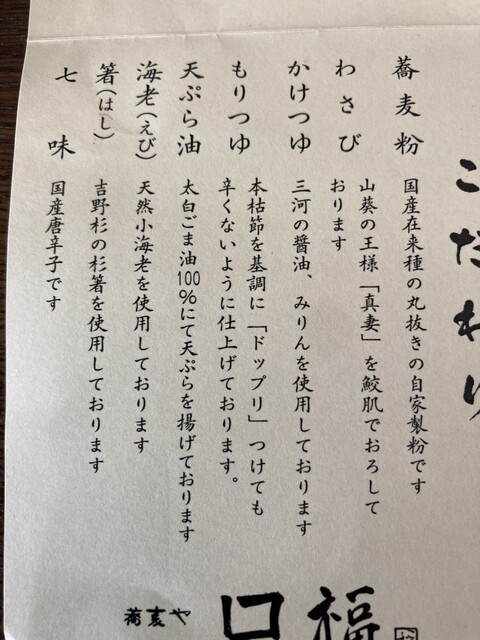 こだわり
蕎麦粉 国産在来種の丸抜きの自家製粉です
わさび 山葵の王様「真妻」を鮫肌でおろして
おります
かけつゆ 三河の醤油、みりんを使用しております
もりつゆ 本枯節を基調に「ドップリ」つけても
辛くないように仕上げております。
天ぷら油 太白ごま油100%にて天ぷらを揚げております
海老(えび) 天然小海老を使用しております
箸(はし) 吉野杉の杉箸を使用しております
七味 国産唐辛子です
蕎麦や
口福